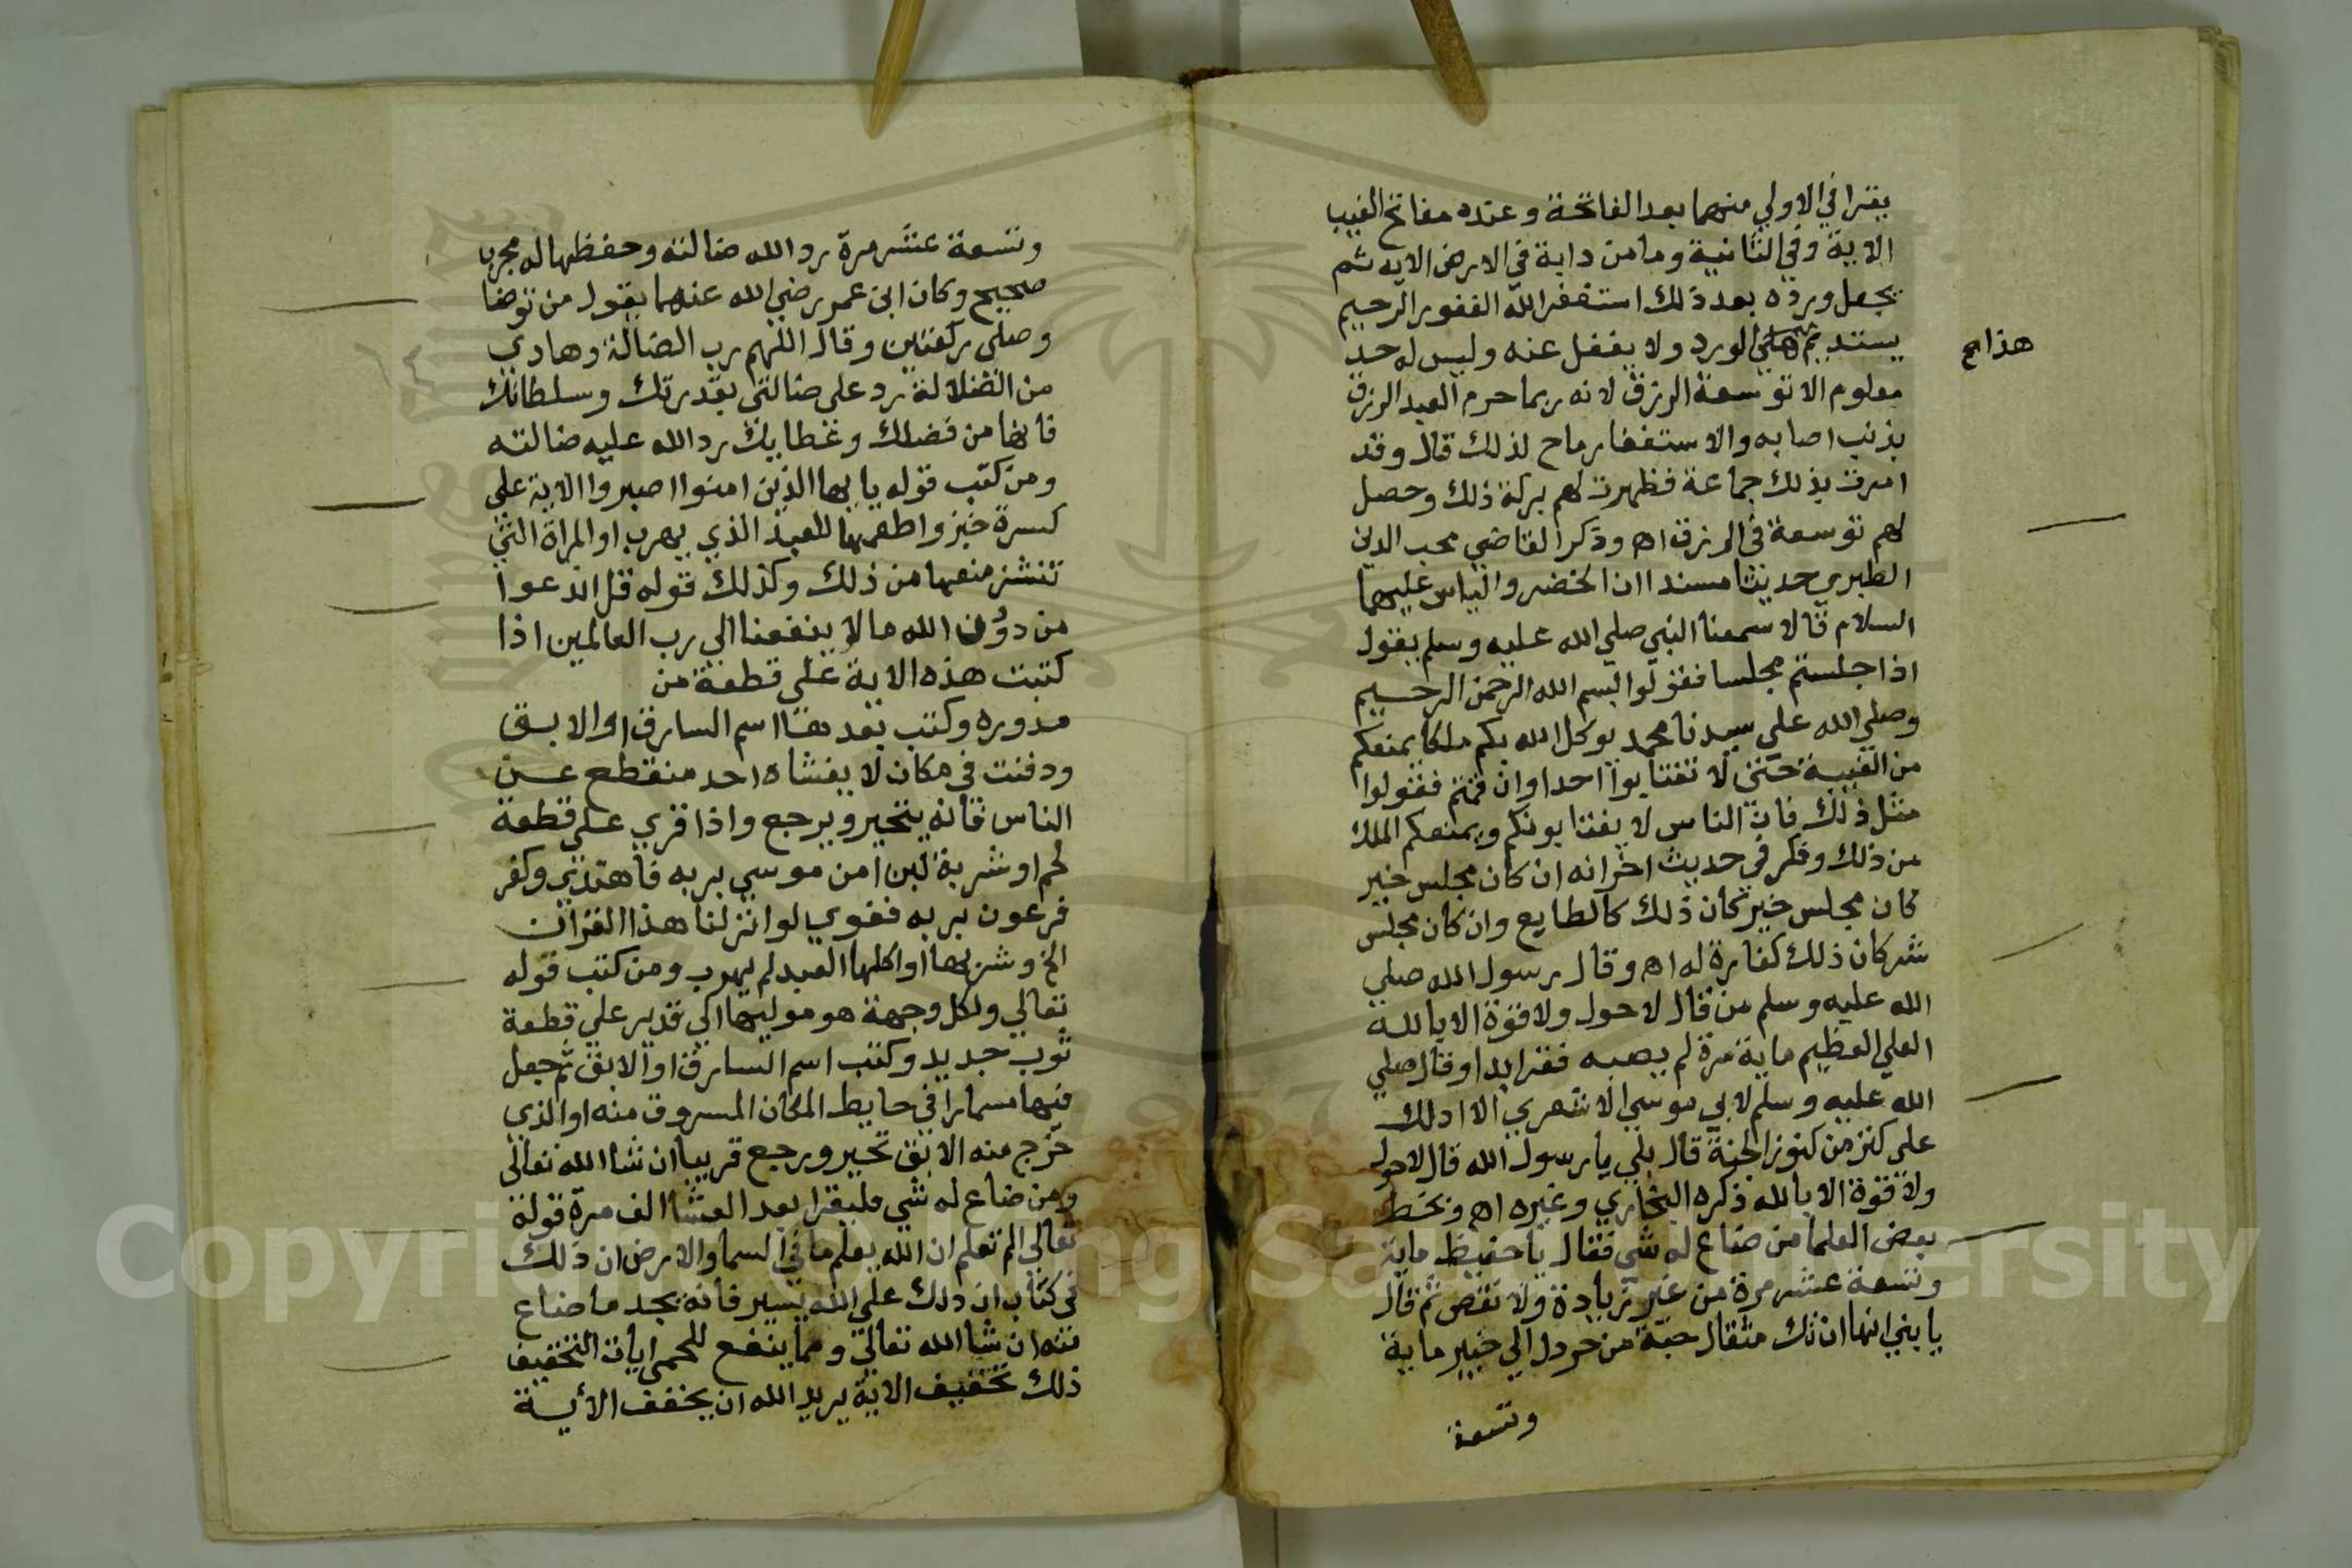 يقرا في الاولي منهما بعد الفاتحة وعنده مفاتح الغيب
الاية وفي الثانية وما من دابة في الارض الايه ثم
يجعل ورده بعد ذلك استغفر الله الغفور الرحيم
يستديم علي الورد ولا يغفل عنه وليس له حد
هذا صح
معلوم الا توسعة الرزق لانه ربما حرم العبد الرزق
بذنب اصابه والاستغفار ماح لذلك قال وقد
امرت بذلك جماعة فظهرت لهم بركة ذلك وحصل
لهم توسعة في الرزق اه وذكر القاضي محب الدين
الطبري حديثا مسندا ان الخضر والياس عليهما
السلام قالا سمعنا النبي صلي الله عليه وسلم يقول
اذا جلستم مجلسا فقولوا بسم الله الرحمن الرحيم
وصلي الله علي سيدنا محمد يوكل الله بكم ملكا يمنعكم
من الغيبة حتى لا تغتابوا احدا وان قمتم فقولوا
مثل ذلك فان الناس لا يغتابونكم ويمنعكم الملك
من ذلك وذكر في حديث اخر انه ان كان مجلس خير
كان مجلس خير كان ذلك كالطابع وان كان مجلس
شر كان ذلك كفارة له اه وقال رسول الله صلي
الله عليه وسلم من قال لا حول ولا قوة الا بالله
العلي العظيم ماية مرة لم يصبه فقر ابدا وقال صلي
الله عليه وسلم لابي موسي الاشعري الا ادلك
على كنز من كنوز الجنة قال بلي يا رسول الله قال لا حول
ولا قوة الا بالله ذكره البخاري وغيره اه وبخط
بعض العلما من ضاع له شي فقال يا حفيظ ماية
وتسعة عشر مرة من غير زيادة ولا نقص ثم قال
يا بني انها ان تك مثقال حبة من خردل الي خبير ماية
وتسعة
وتسعة عشر مرة رد الله ضالته وحفظها له مجرب
صحيح وكان ابن عمر رضي الله عنهما يقول من توضا
وصلى ركعتين وقال اللهم رب الضالة وهادي
من الضلالة رد علي ضالتي بقدرتك وسلطانك
فانها من فضلك وعطايك رد الله عليه ضالته
ومن كتب قوله يا يها الذين امنوا اصبروا الاية على
كسرة خبز واطعمها للعبد الذي يهرب او المراة التي
تنشز منعها من ذلك وكذلك قوله قل اندعوا
من دون الله ما لا ينفعنا الي رب العالمين اذا
كتبت هذه الاية على قطعة من
مدوره وكتب بعدها اسم السارق او الابق
ودفنت في مكان لا يغشاه احد منقطع عن
الناس فانه يتحير ويرجع واذا قري على قطعة
لحم او شربة لبن امن موسي بربه فاهتدي وكفر
فرعون بربه فغوي لو انزلنا هذا القران
الخ وشربها او اكلها العبد لم يهرب ومن كتب قوله
تعالي ولكل وجهة هو موليها الي قدير علي قطعة
ثوب جديد وكتب اسم السارق او الابق ثم جعل
فيها مسمارا في حايط المكان المسروق منه او الذي
خرج منه الابق تحير ورجع قريبا ان شا الله تعالى
ومن ضاع له شي فليقرا بعد العشا الف مرة قوله
تعالي الم تعلم ان الله يعلم ما في السما والارض ان ذلك
في كتاب ان ذلك علي الله يسير فانه يجد ما ضاع
منه ان شا الله تعالي ومما ينفع للحمى ايات التخفيف
ذلك تخفيف الاية يريد الله ان يخفف الأية
Copyright © King Saud University